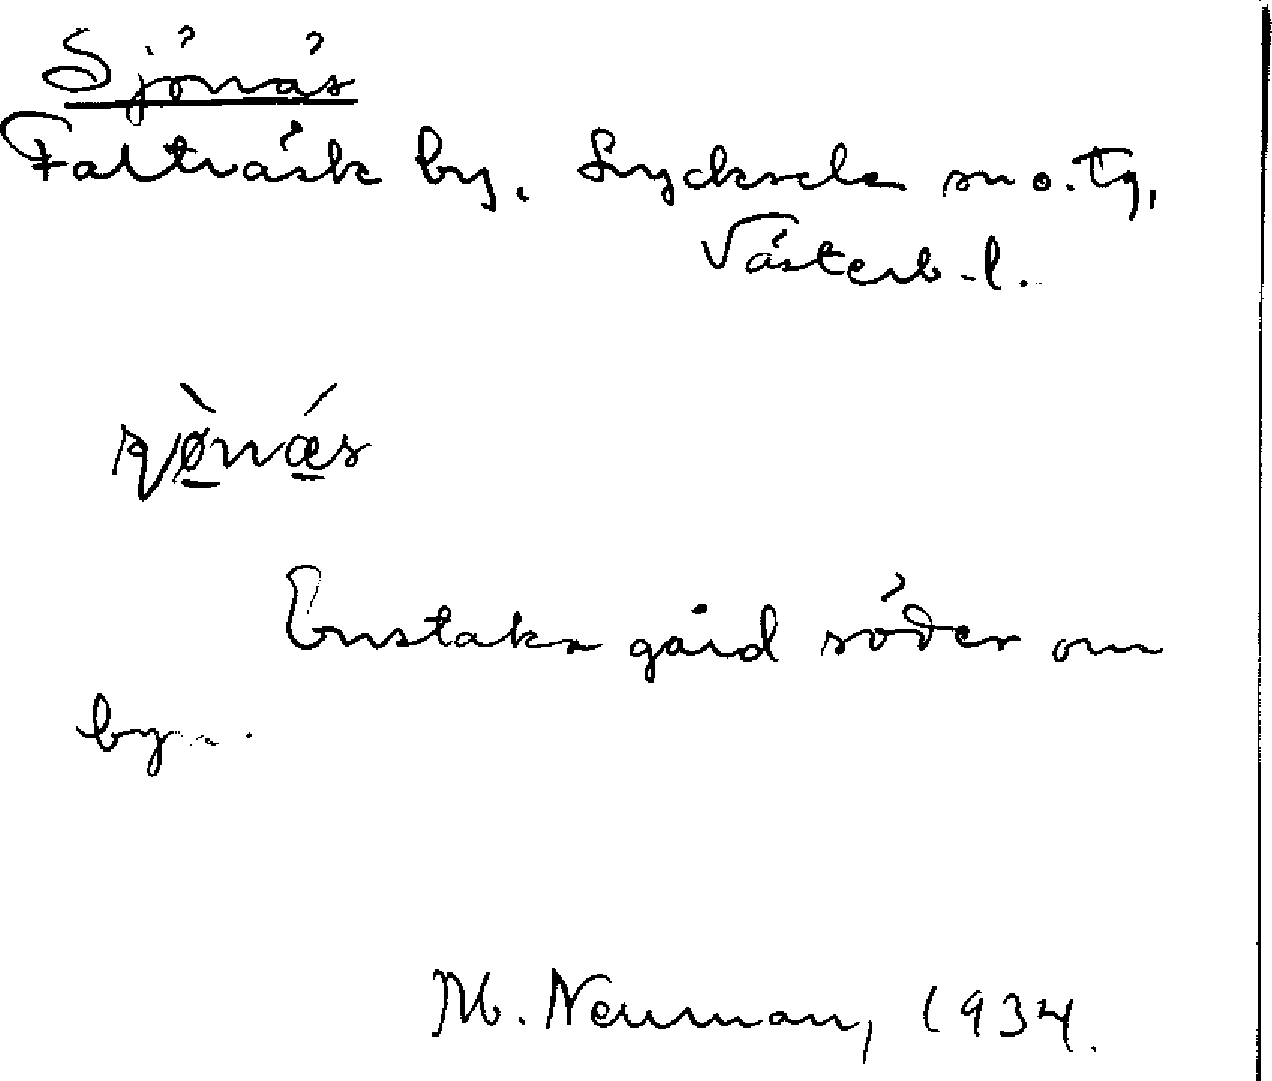 Sjönäs
Falträsk by. Lycksele sn o. tg,
Västerb-l.
Enstaka gård söder om
byn.
M. Neuman, 1934.